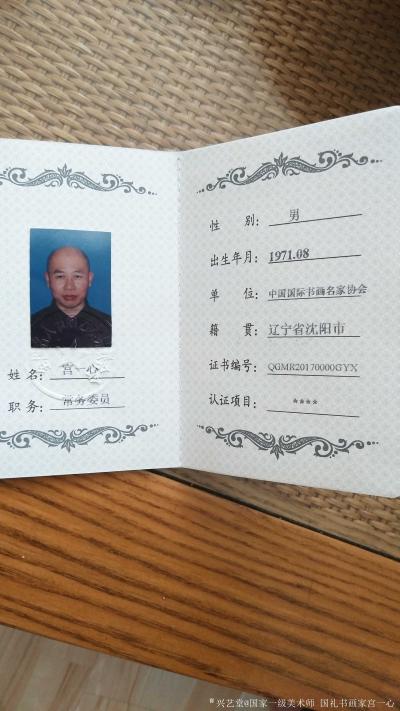 姓名：宫一心
职务：常务委员
性别：男
出生年月：1971.08
单位：中国国际书画名家协会
籍贯：辽宁省沈阳市
证书编号：QGMR20170000GYX
认证项目：****
兴艺堂@国家一级美术师 国礼书画家宫一心